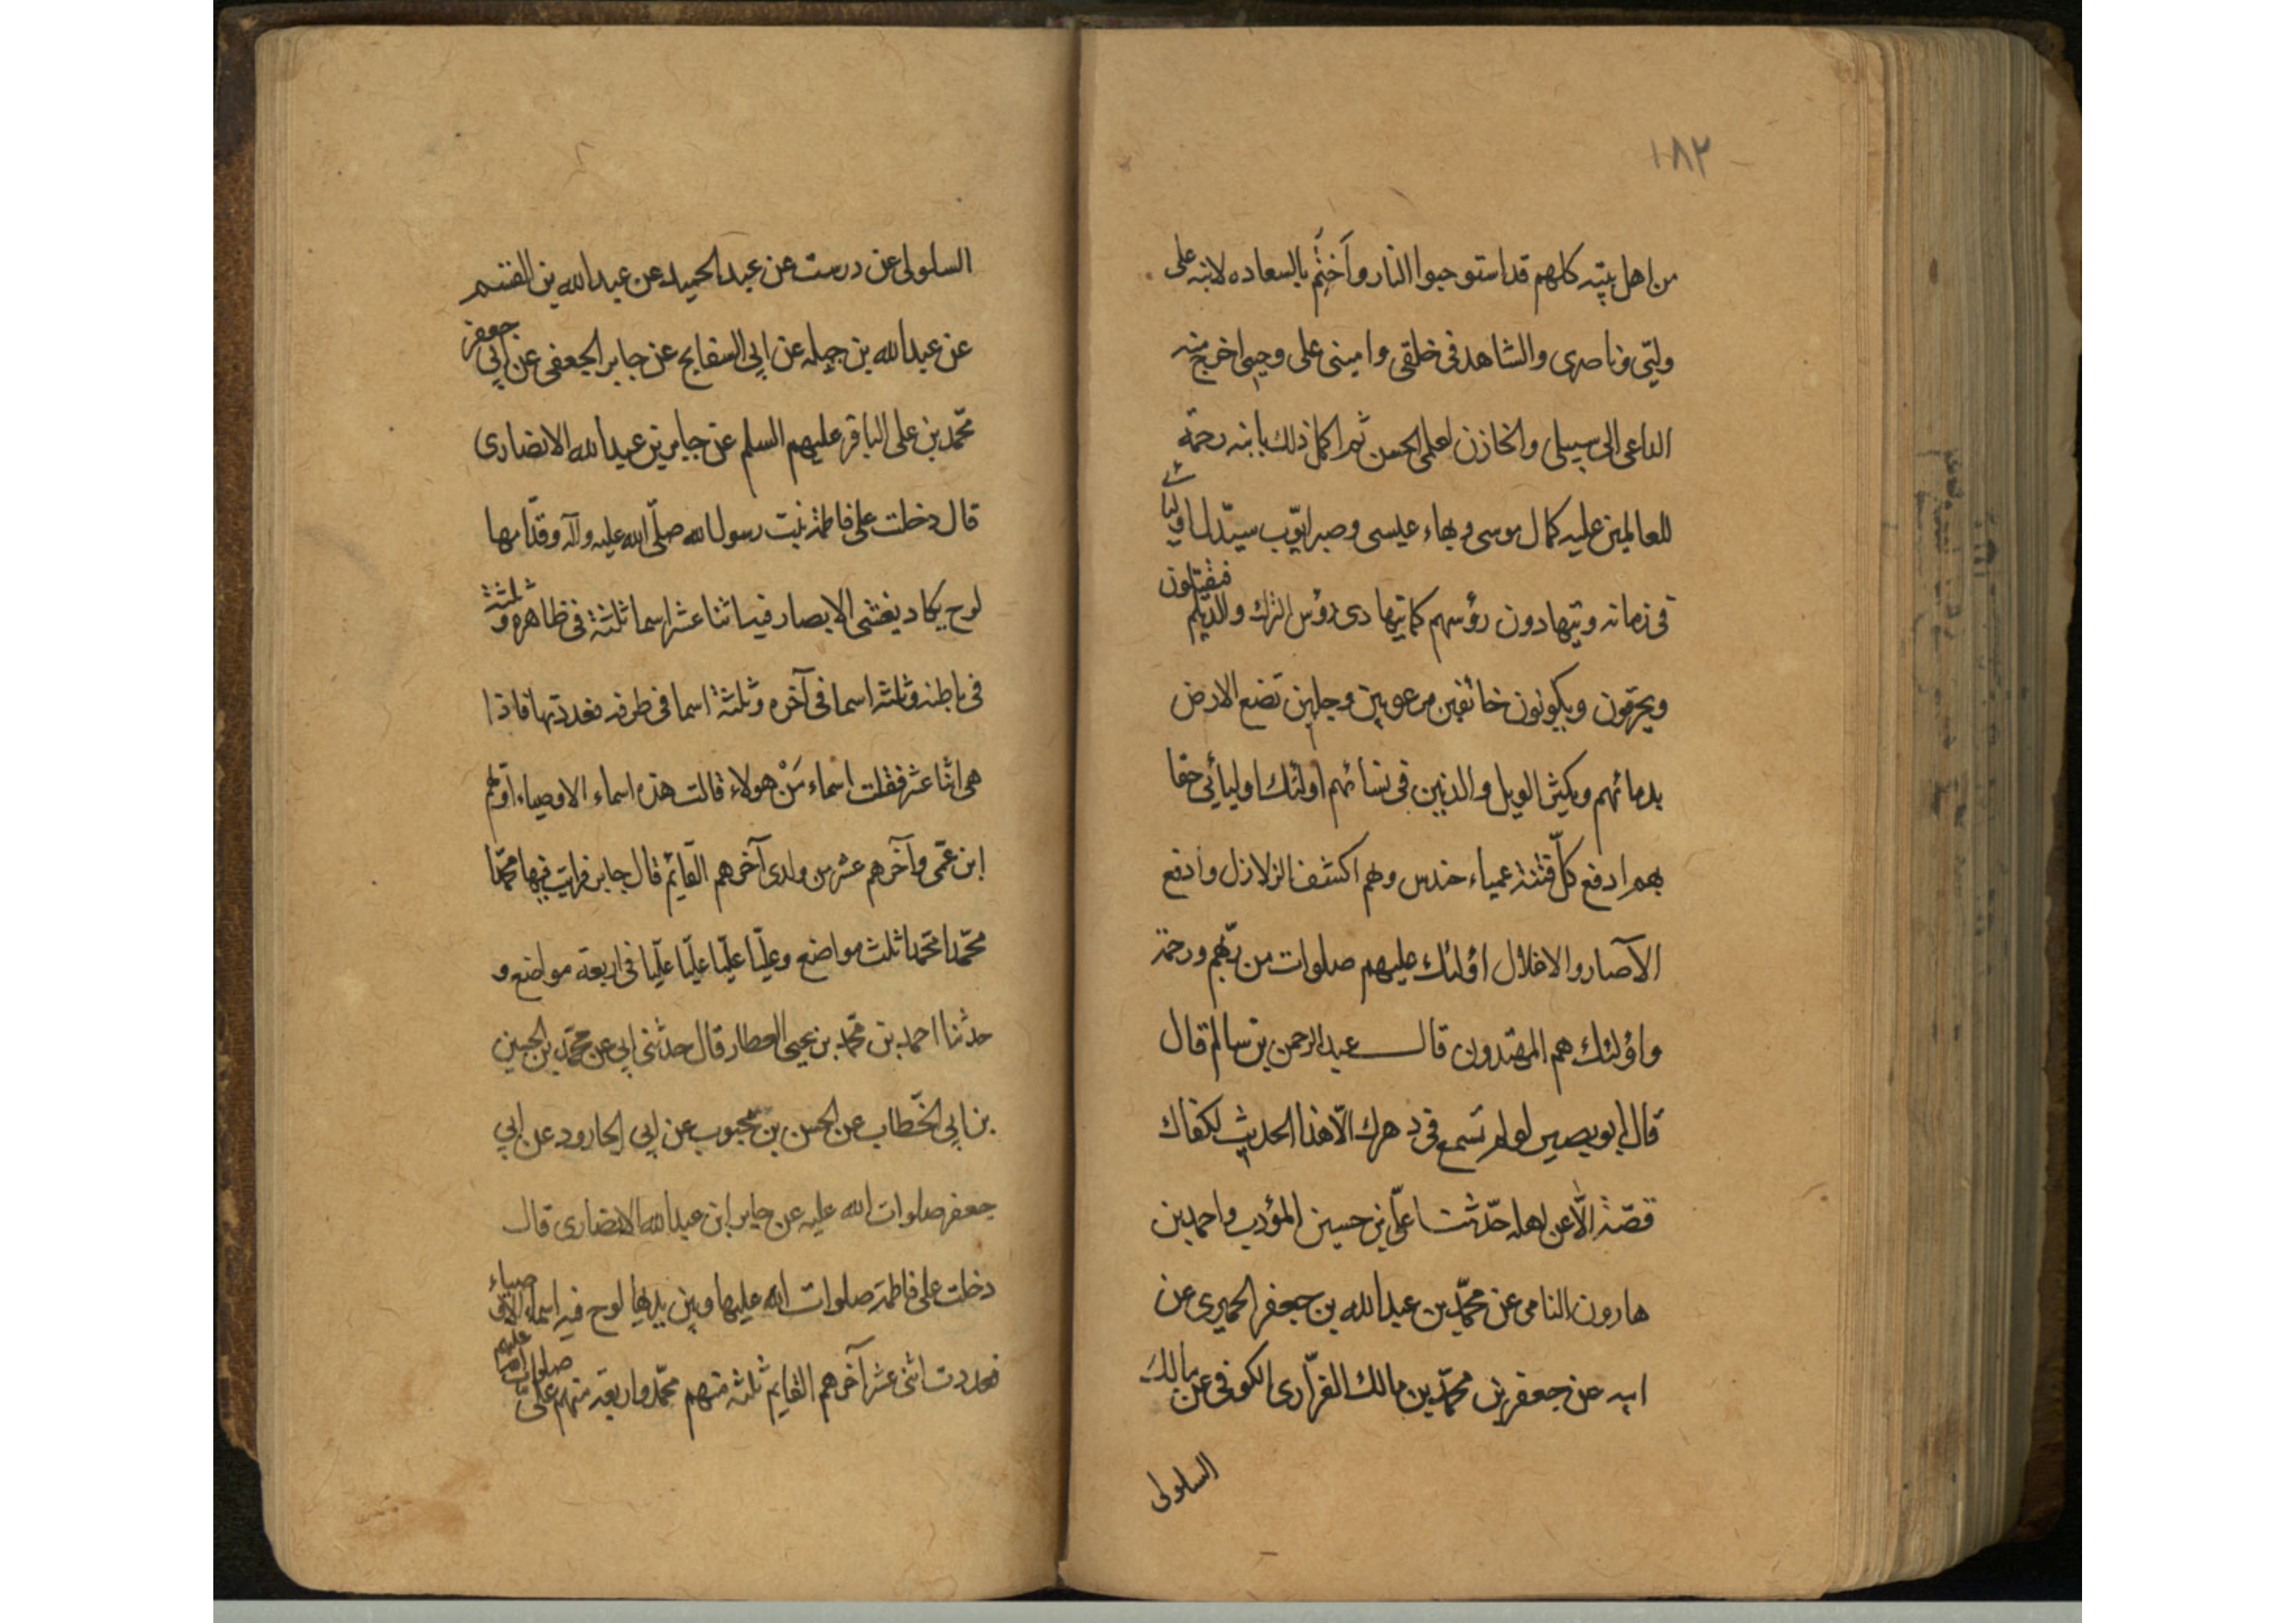 ١٨٢
من اهل بيته كلهم قد استوجبوا النار وأختم بالسعاده لابنه على
وليّى وناصرى والشاهد فى خلقى وامينى على وحيى اخرج منه
الداعى الى سبيلى والخازن لعلمى الحسن ثم اكمل ذلك بابنه رحمة
للعالمين عليه كمال موسى وبهاء عيسى وصبر ايّوب سيّذل اوليائى
فى زمانه ويتهادون رؤسهم كما يتهادى رؤس الترك والديلم فيقتلون
ويحرقون ويكونون خائفين مرعوبين وجلين تصبغ الارض
بدمائهم ويكثر الويل والذنين فى نسائهم اولئك اوليائي حقا
بهم ادفع كلّ فتنة عمياء حندس وبهم اكشف الزلازل وادفع
الآصار والاغلال اولئك عليهم صلوات من ربّهم ورحمة
واولئك هم المهتدون قال عبد الرحمن بن سالم قال
قال ابو بصير لو لم تسمع فى دهرك الّا هذا الحديث لكفاك
فصنه الّا عن اهله حدّثنا علىّ بن حسين المؤدب واحمد بن
هارون النامى عن محمّد بن عبد الله بن جعفر الحميرى عن
ابيه عن جعفر بن محمّد بن مالك الفزّارى الكوفى عن مالك
السلولى
السلولى عن درست عن عبد الحميد عن عبد الله بن القسم
عن عبد الله بن جبله عن ابى السفايج عن جابر الجعفى عن ابى جعفر
محمّد بن على الباقر عليهم السلم عن جابر بن عبد الله الانصارى
قال دخلت على فاطمة بنت رسول الله صلّى الله عليه وآله وقدّامها
لوح يكاد يغشى الابصار فيه اثنا عشر اسما ثلثة فى ظاهره وثلثة
فى باطنه وثلثة اسما فى آخره وثلثة اسما فى طرفه فعددتها فاذا
هى اثنا عشر فقلت اسماء مَنْ هولاء قالت هذه اسماء الاوصياء اوّلهم
ابن عمّى وآخرهم عشر من ولدى آخرهم القائم قال جابر فرايت فيها محمّدا
محمّدا محمّدا ثلث مواضع وعليّا عليّا عليّا عليّا فى اربعة مواضع و
حدثنا احمد بن محمّد بن يحيى العطار قال حدثنى ابى عن محمّد بن الحسين
بن ابي الخّطاب عن الحسن بن محبوب عن ابى الجارود عن ابي
جعفر صلوات الله عليه عن جابر ابن عبد الله الانصارى قال
دخلت على فاطمة صلوات الله عليها وبين يديها لوح فيه اسماء الاوصياء
فعددت اثنى عشر آخرهم القايم ثلثه منهم محمّد واربعة منهم علىّ صلوات الله عليهم